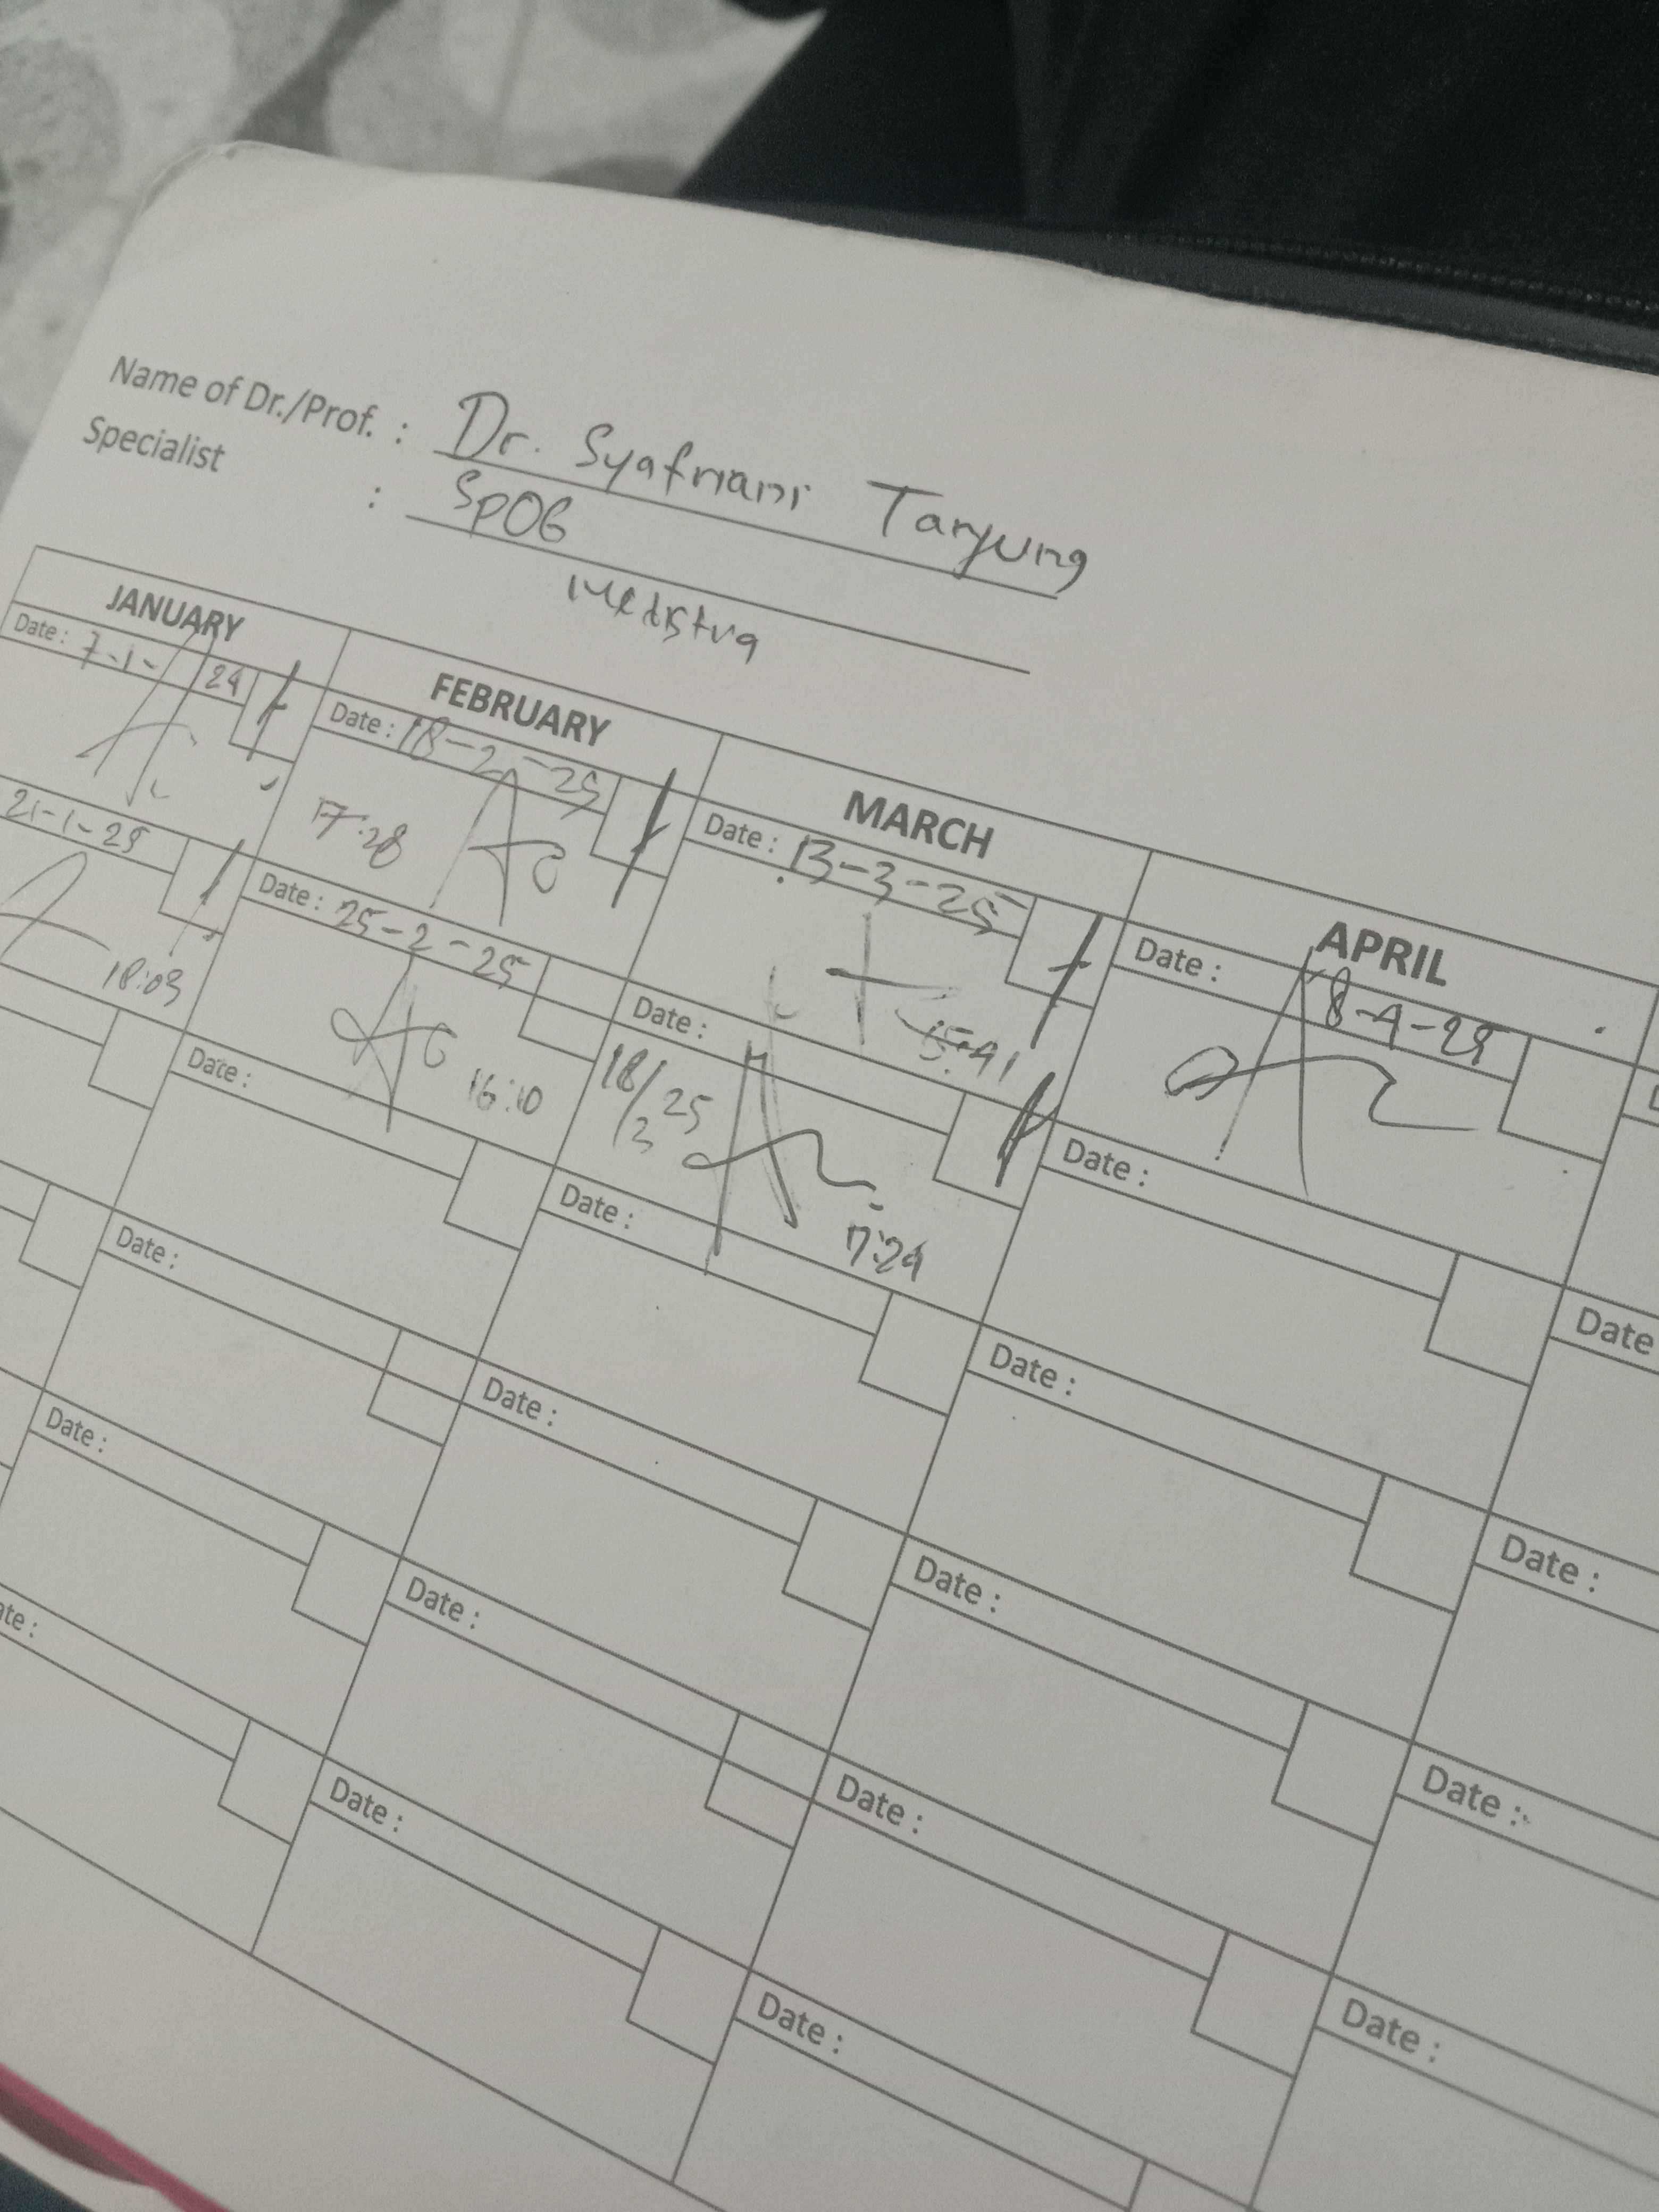 Name of Dr./Prof. : Dr. Syafriani Tanjung
Specialist : SPOG
Medistra
JANUARY FEBRUARY MARCH APRIL
Date : 7-1-24
Date : 18-2-25
17:28
Date : 13-3-25
15:41
Date : 8-4-25
21-1-25
18:03
Date : 25-2-25
16:10
Date :
18/3 25
17:24
Date :
Date :
Date :
Date :
Date
Date :
Date :
Date :
Date :
Date :
Date :
Date :
Date :
ate :
Date :
Date :
Date :
Date :